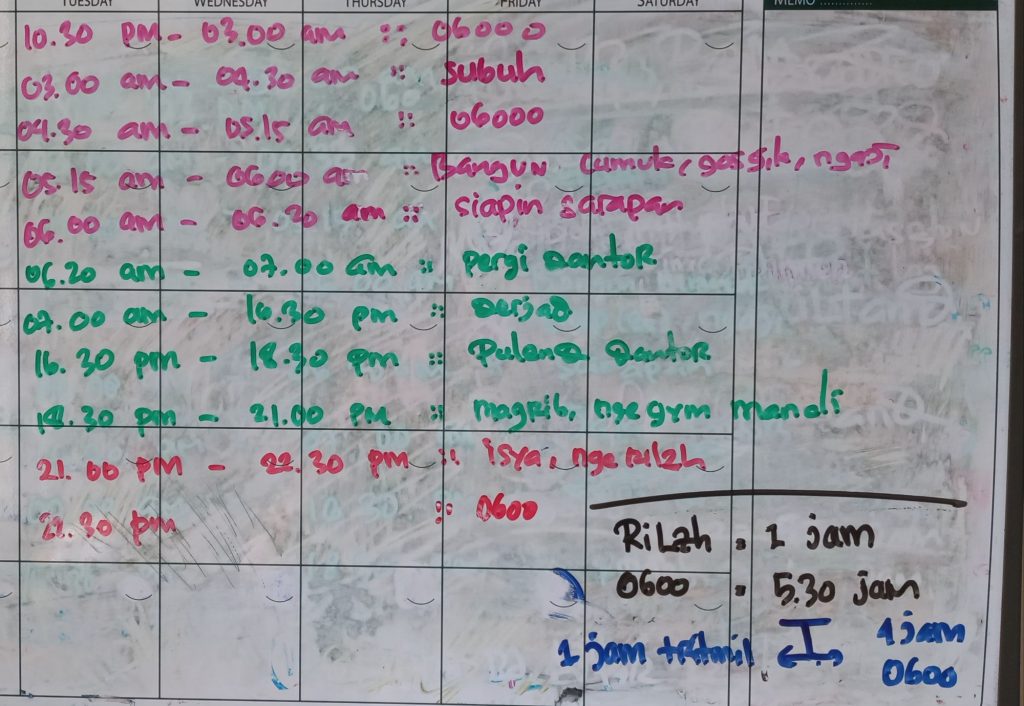 TUESDAY WEDNESDAY THURSDAY FRIDAY SATURDAY MEMO
10.30 PM - 03.00 am :: 06000
03.00 am - 04.30 am :: subuh
04.30 am - 05.15 am :: 06000
05.15 am - 0600 am :: Bangun cumuk, gossik, ngopi
06.00 am - 06.20 am :: siapin sarapan
06.20 am - 07.00 am :: pergi qantor
07.00 am - 16.30 pm :: qerjaq
16.30 pm - 18.30 pm :: Pulang qantor
18.30 pm - 21.00 PM :: magrib, nge gym mandi
21.00 pm - 22.30 pm :: isya, nge rilzh
22.30 pm :: 0600
RiLzh : 1 jam
0600 : 5.30 jam
1 jam tretmil ↔ 1 jam
0600